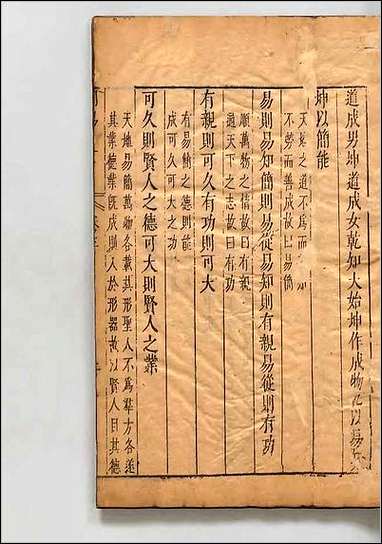 道成男坤道成女乾知大始坤作成物乾以易知
坤以簡能
天地之道不為而
不勞而善成故曰易簡
易則易知簡則易從易知則有親易從則有功
順萬物之情故曰有親
通天下之志故曰有功
有親則可久有功則可大
有易簡之德則能
成可久可大之功
可久則賢人之德可大則賢人之業
天地易簡萬物各載其形聖人不為羣方各遂
其業德業既成則入於形器故以賢人目其德